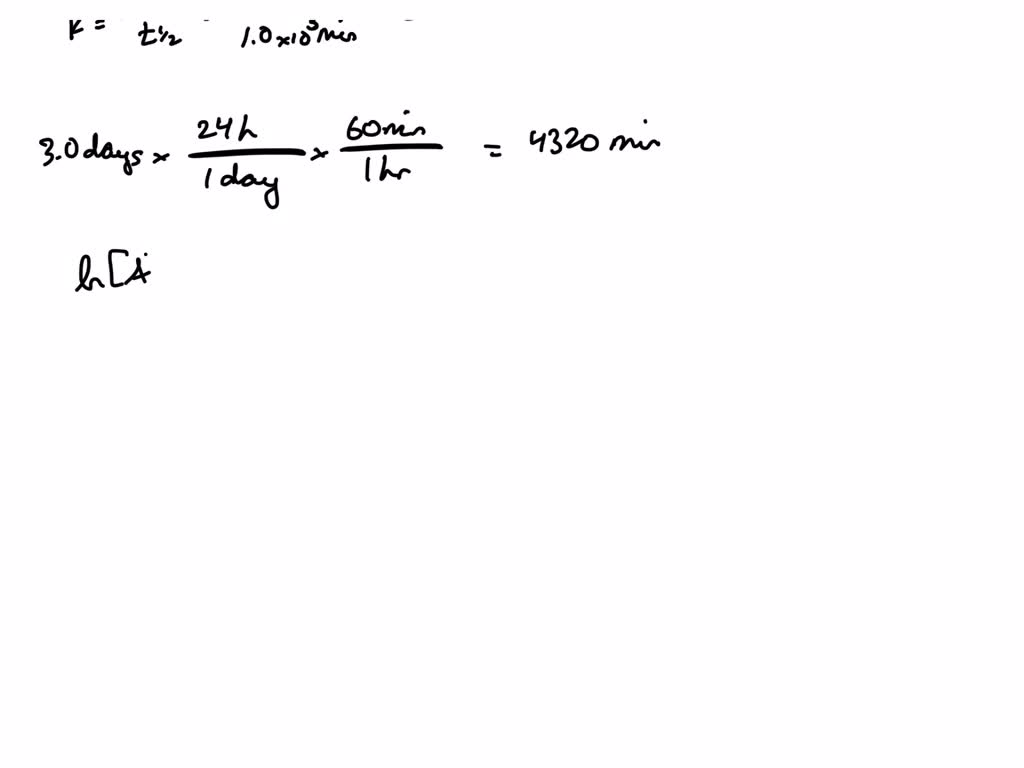 K = t½ 1.0×10³ min
3.0 days × 24h / 1 day × 60 min / 1 hr = 4320 min
ln[A